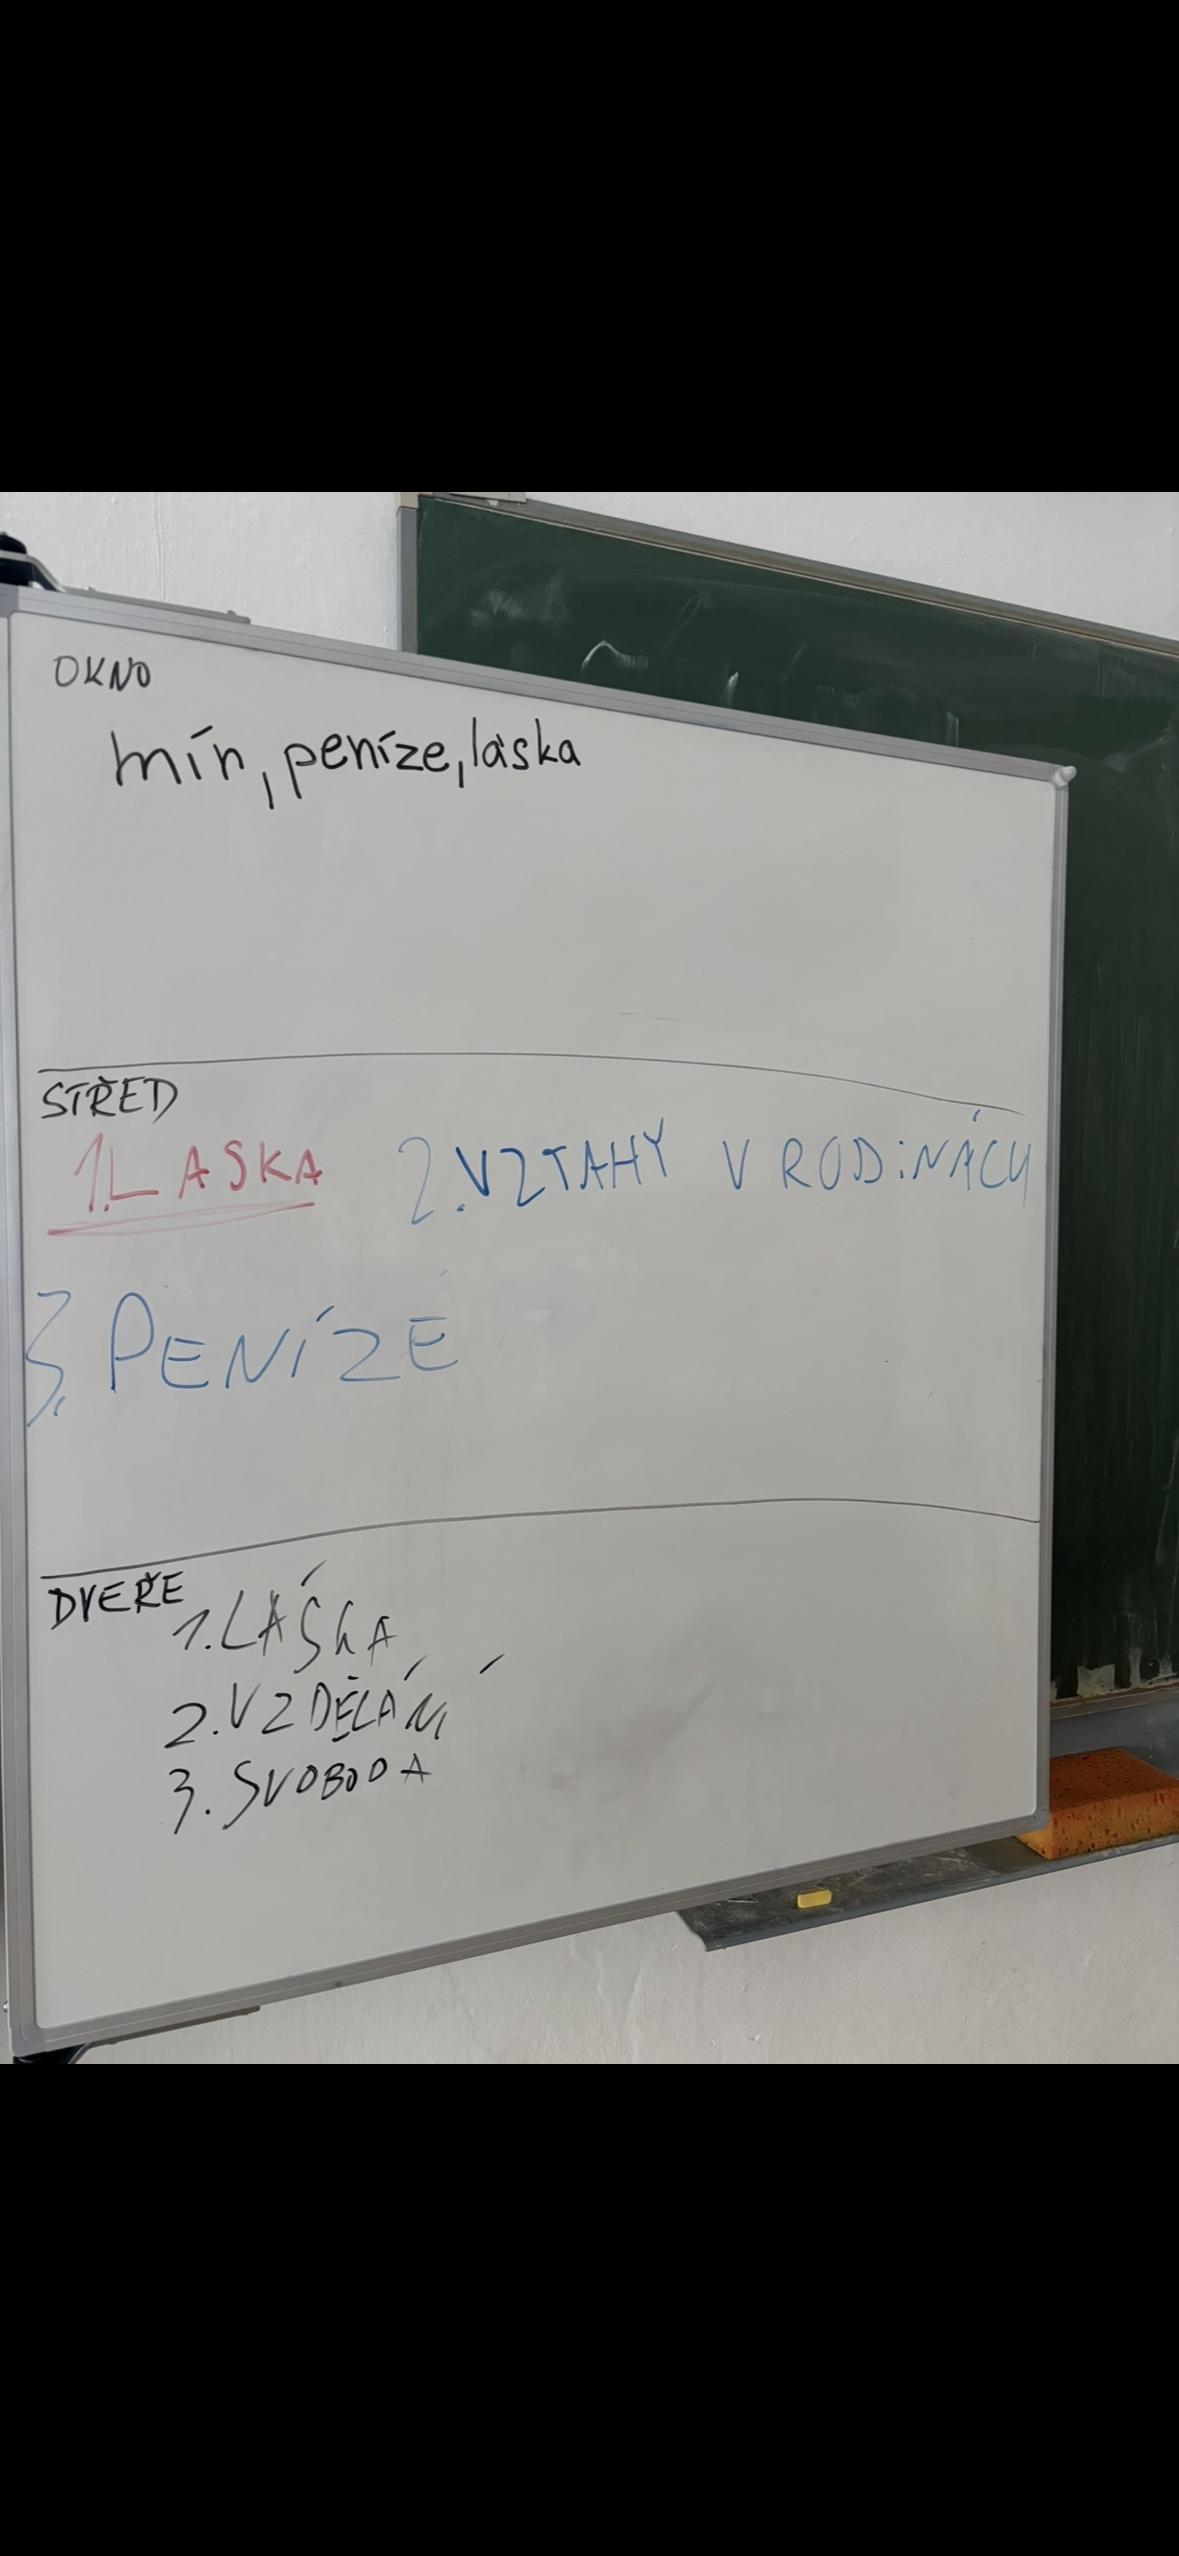 OKNO
mír, peníze, láska
STŘED
1. LASKA 2. VZTAHY V RODINÁCH
3. PENÍZE
DVEŘE
1. LÁSKA
2. VZDĚLÁNÍ
3. SVOBODA